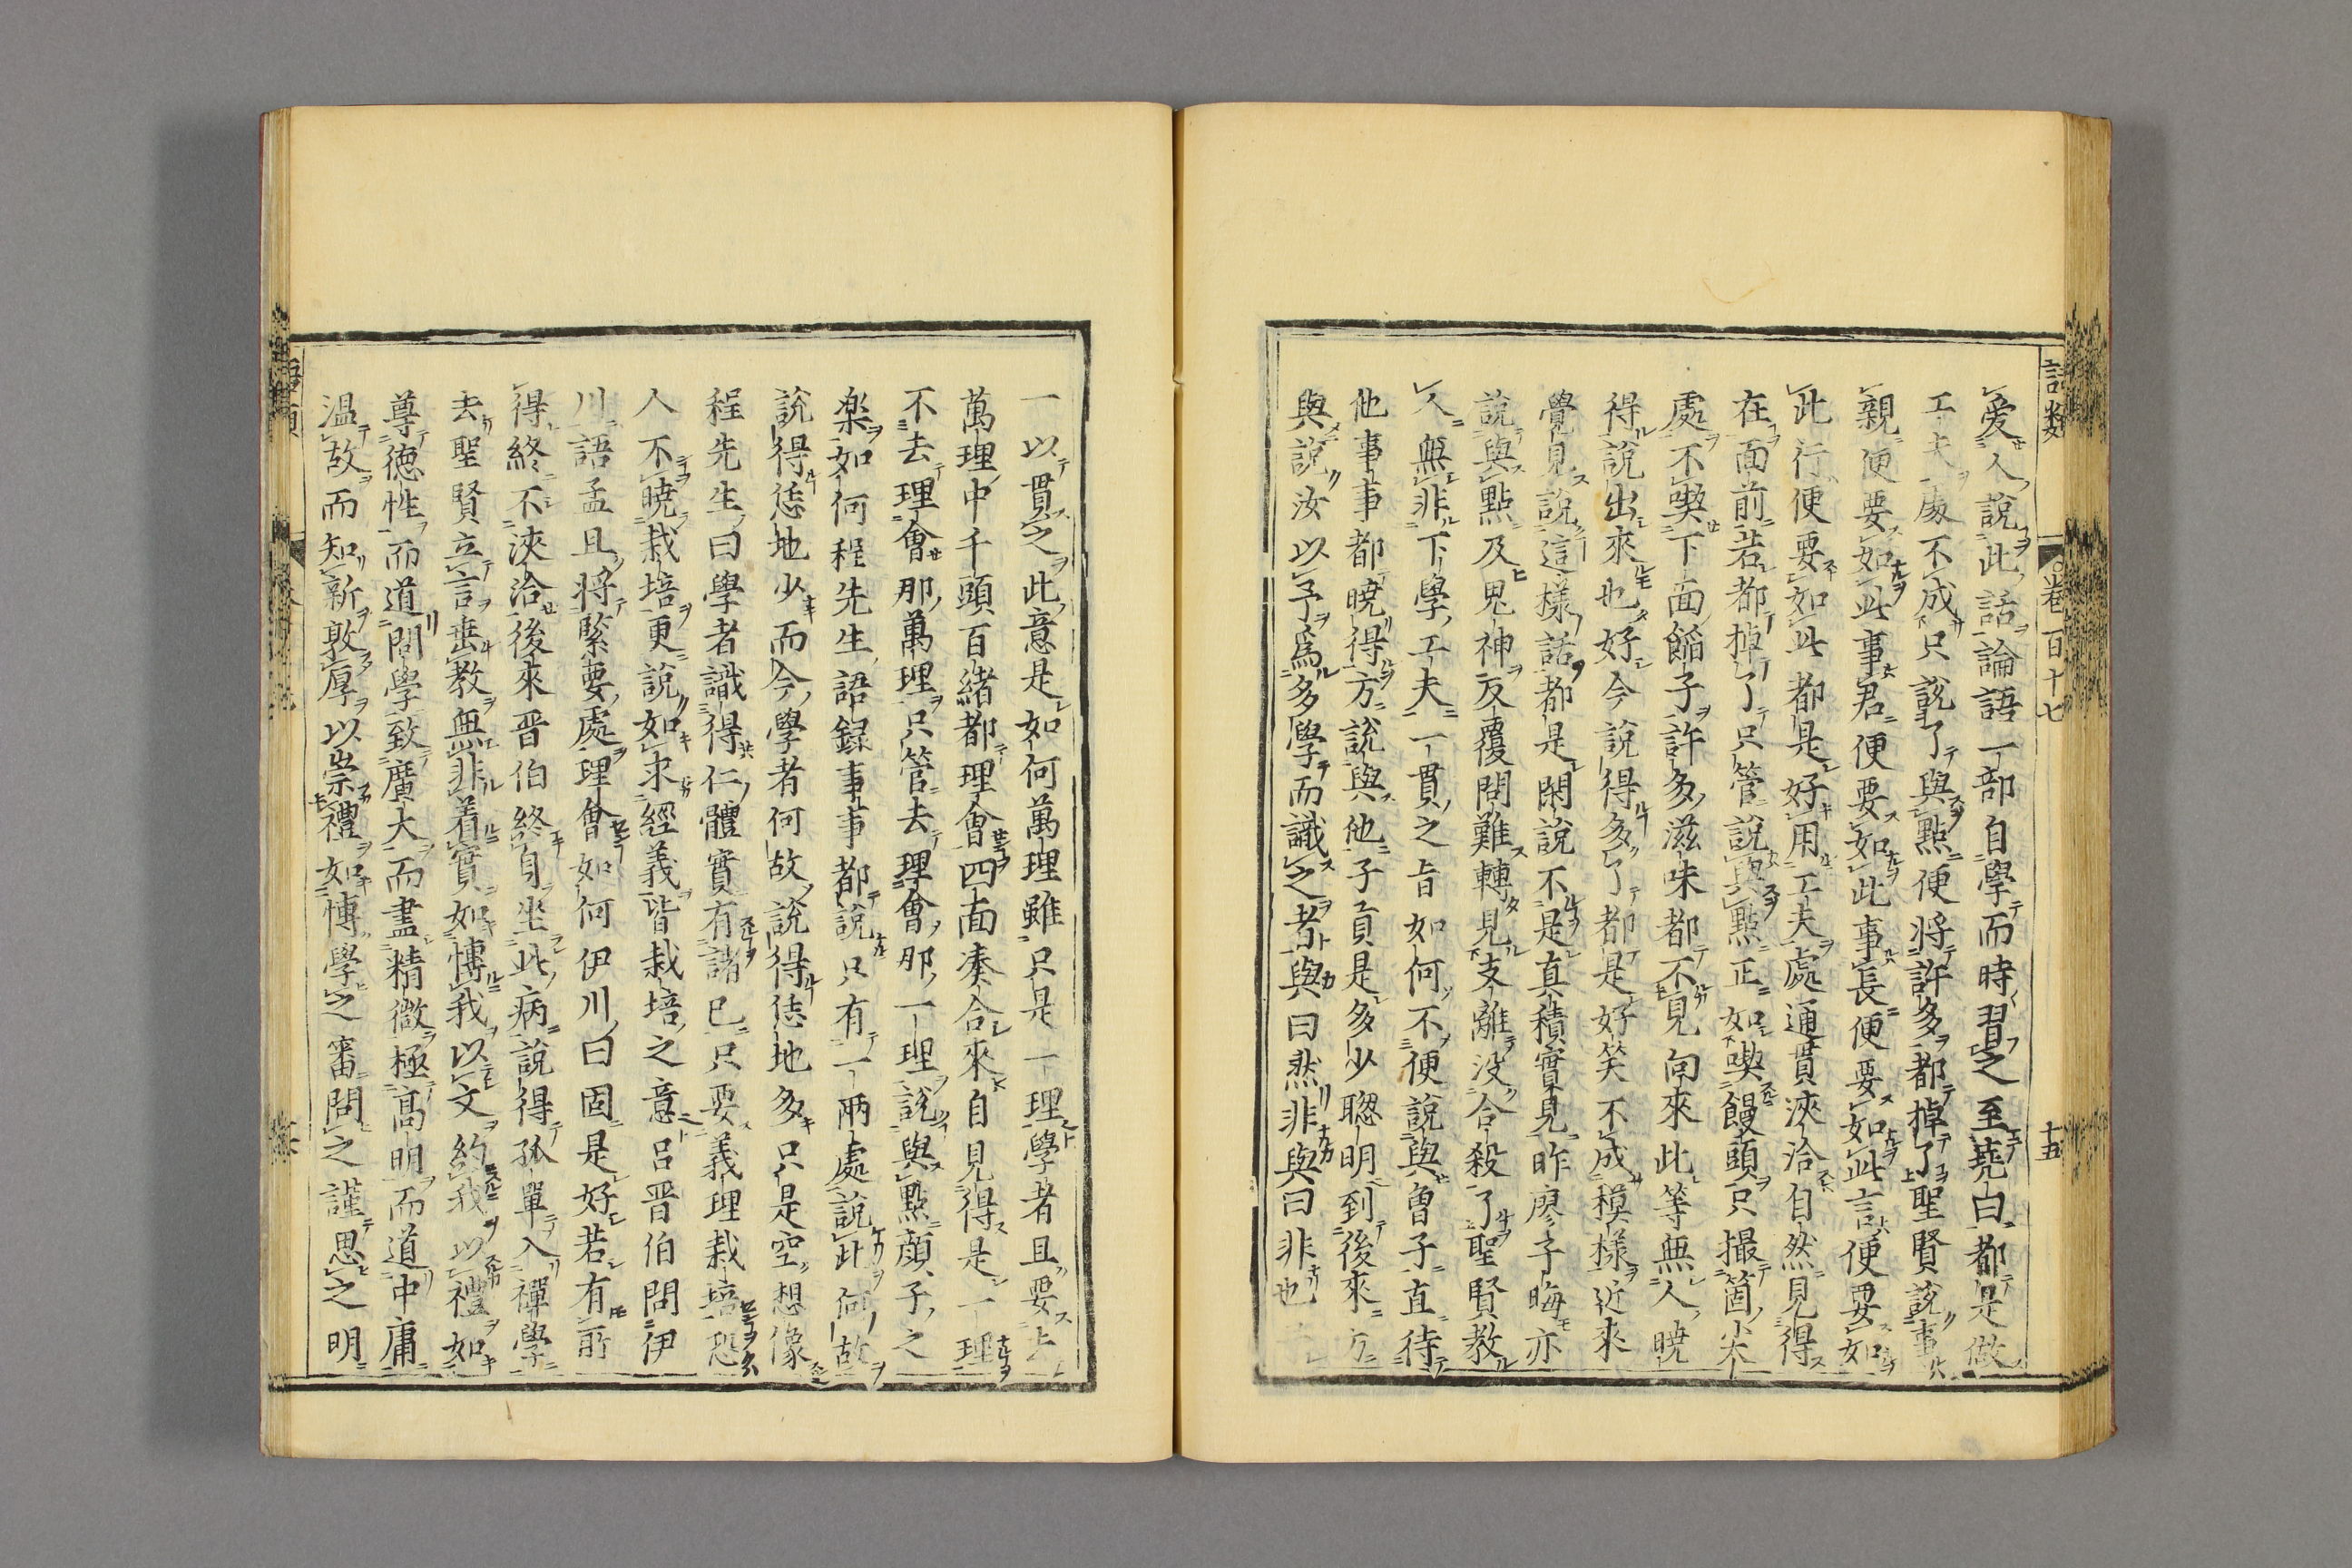 語類
卷百十七
十五
愛人說此話論語一部自學而時習之至堯曰都是做
工夫處不成只說了與點便將許多都掉了聖賢說事
親便要如此事君便要如此事長便要如此言便要如
此行便要如此都是好用工夫處通貫浹洽自然見得
在面前若都掉了只管說與點正如喫饅頭只撮箇尖
處不喫下面餡子許多滋味都不見向來此等無人曉
得說出來也好今說得多了都是好笑不成模樣近來
覺見說這樣話都是閑說不是真積實見昨廖子晦亦
說與點及鬼神反覆問難轉見支離没合殺了聖賢教
人無非下學工夫一貫之旨如何不便說與曾子直待
他事事都曉得方說與他子貢是多少聰明到後來方
與說汝以予爲多學而識之者與曰然非與曰非也
一以貫之此意是如何萬理雖只是一理學者且要去
萬理中千頭百緒都理會四面凑合來自見得是一理
不去理會那萬理只管去理會那一理說與點顔子之
楽如何程先生語録事事都說只有一兩處說此何故
說得恁地少而今學者何故說得恁地多只是空想像
程先生曰學者識得仁體實有諸已只要義理栽培恐
人不曉栽培更說如求經義皆栽培之意呂晋伯問伊
川語孟且將緊要處理會如何伊川曰固是好若有所
得終不浹洽後來晋伯終身坐此病說得孤單入禪學
去聖賢立言垂教無非着實如博我以文約我以禮如
尊德性而道問學致廣大而盡精微極高明而道中庸
温故而知新敦厚以崇禮如博學之審問之謹思之明